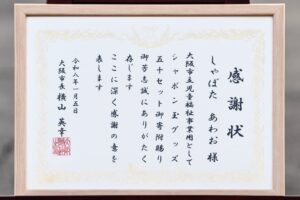 感謝状
しゃぼた あわお 様
大阪市立児童福祉事業用として
シャボン玉グッズ
五十セット御寄附賜り
御芳志誠にありがたく
存じます
ここに深く感謝の意を
表します
令和八年一月五日
大阪市長 横山 英幸